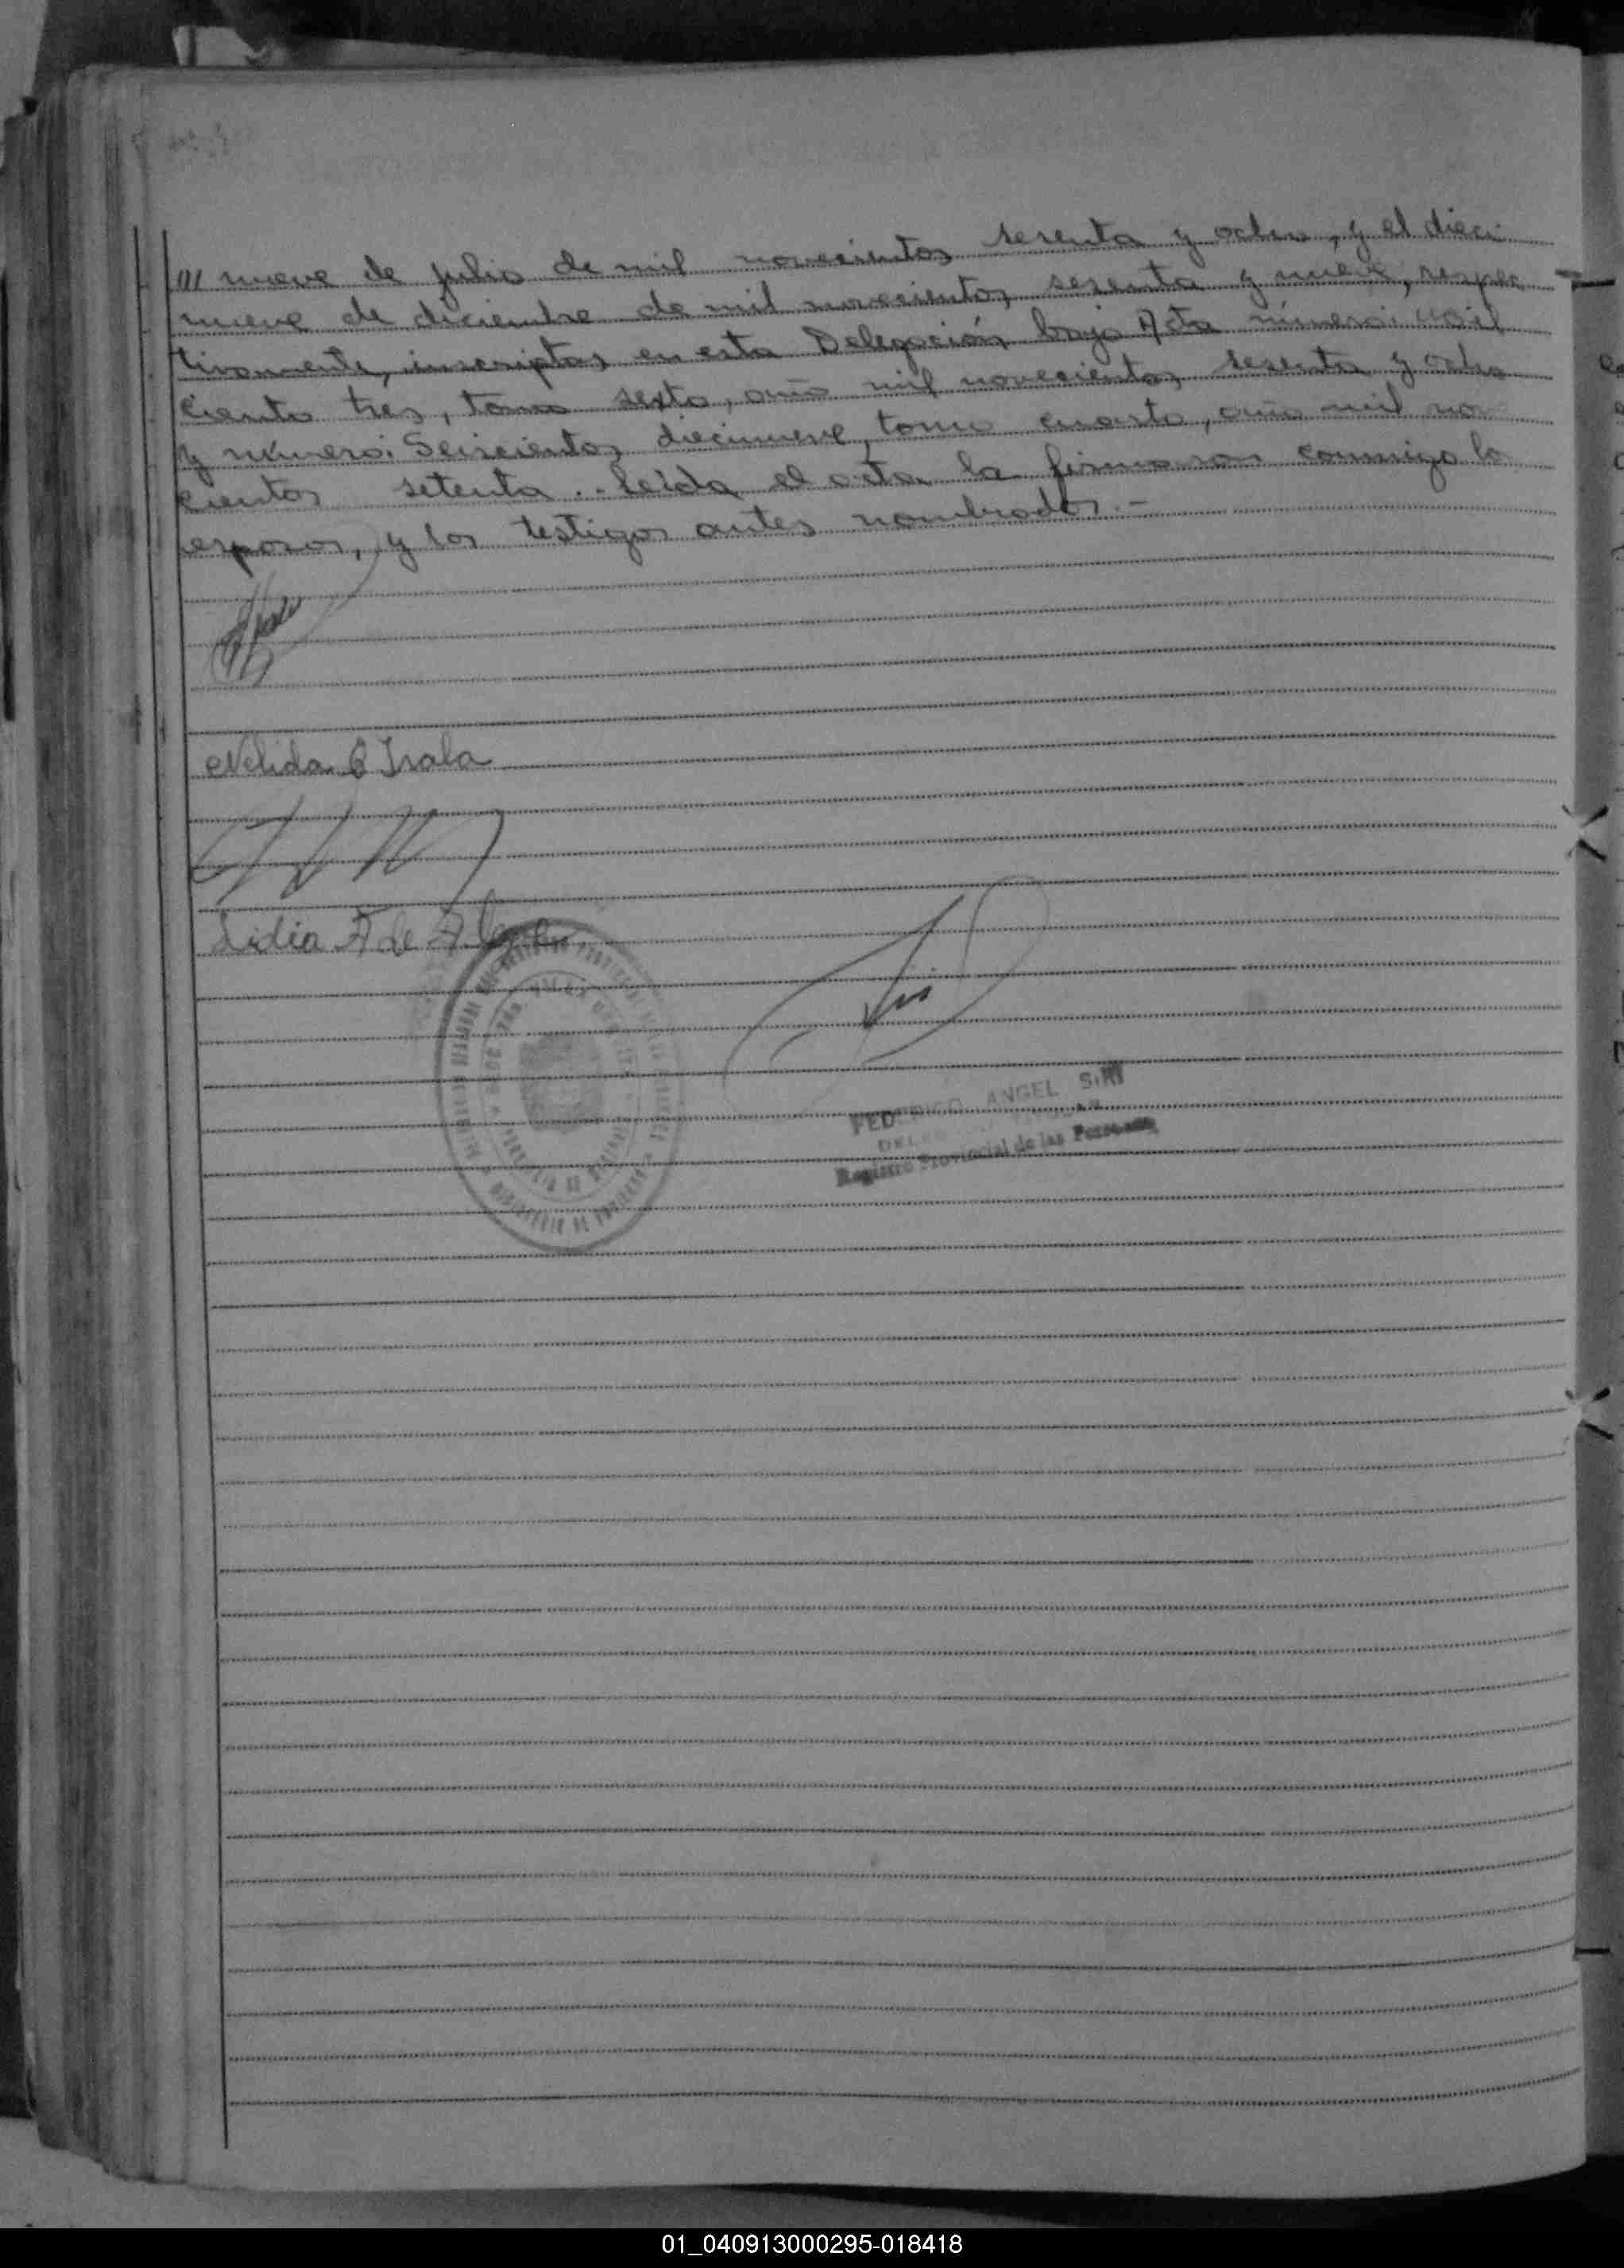 /// nueve de julio de mil novecientos sesenta y ocho, y el dieci
nueve de diciembre de mil novecientos sesenta y nueve, respec
tivamente, inscriptas en esta Delegación bajo Acta número: mil
ciento tres, tomo sexto, año mil novecientos sesenta y ocho
y número: Seiscientos diecinueve, tomo cuarto, año mil no
cientos setenta.- Leída el acta la firmaron conmigo lo
esposos, y los testigos antes nombrados.-
Nelida E Irala
Lidia F de
FEDERICO ANGEL
Registro Provincial de las Personas
01_040913000295-018418